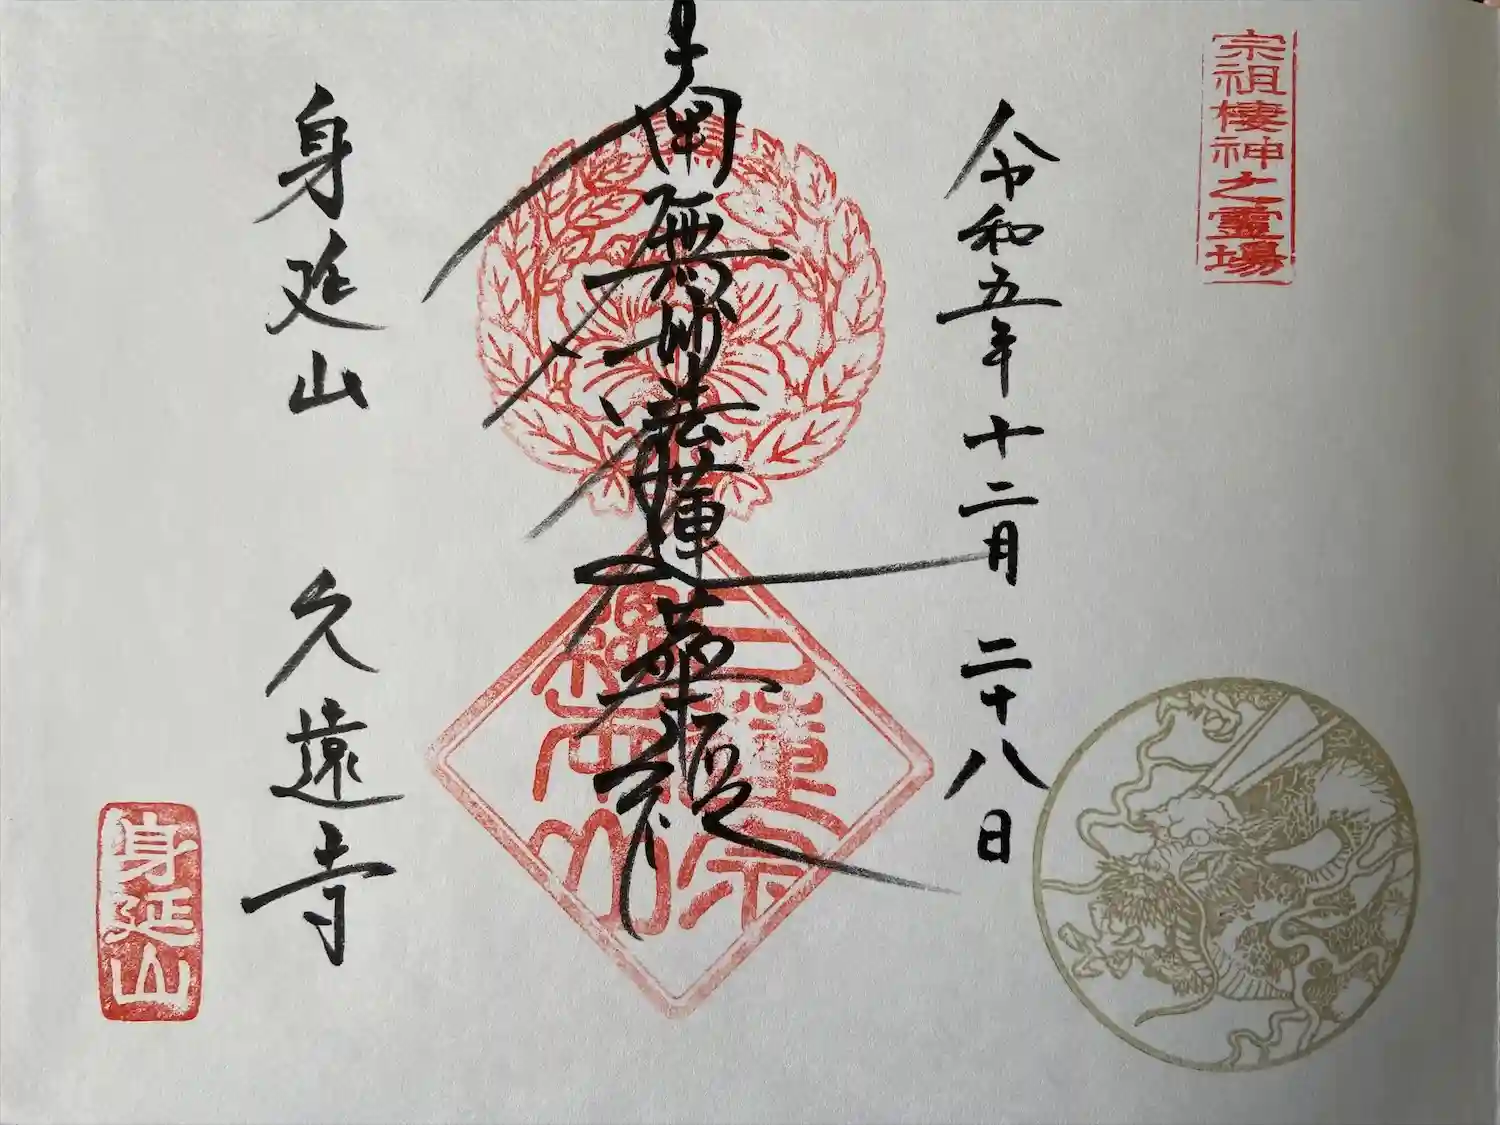 宗祖棲神之霊場
令和五年十二月二十八日
南無妙法蓮華経
日蓮宗
総本山
身延山 久遠寺
身延山